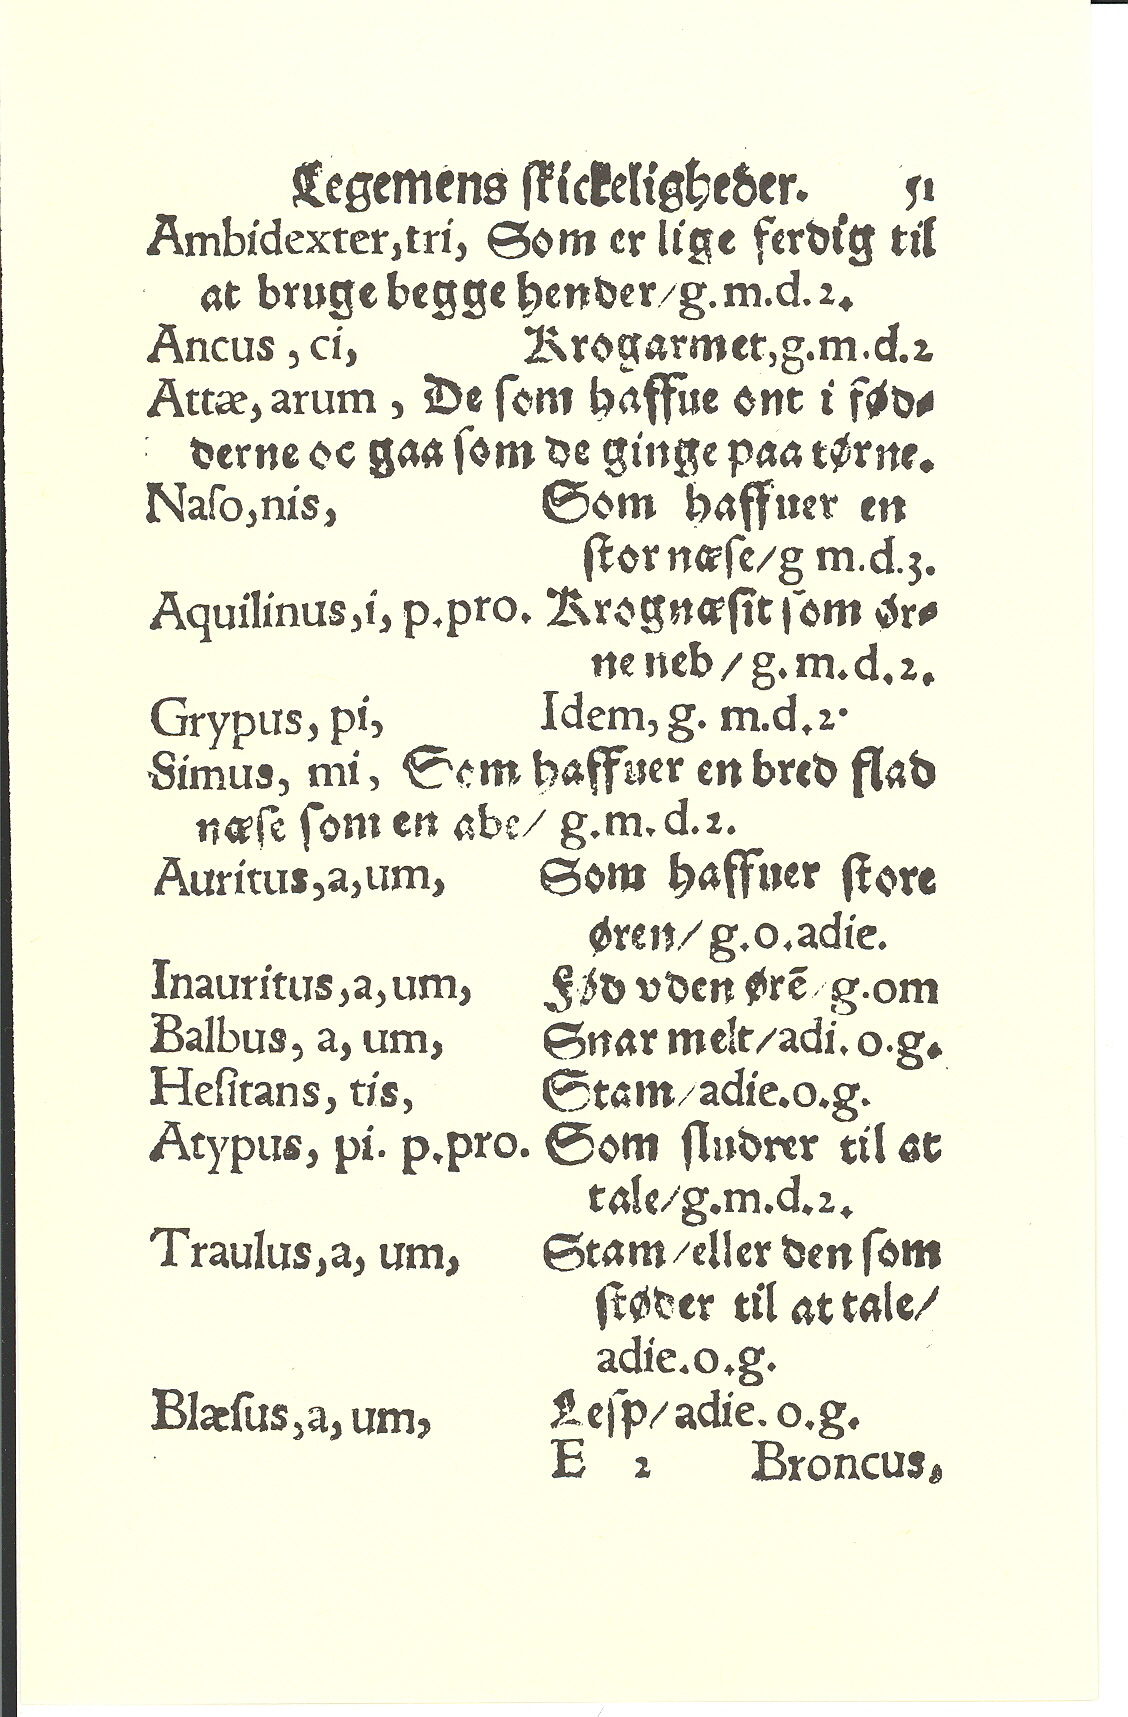 Legemens ſkickeligheder. 51
Ambidexter,tri, Som er lige ferdig til
at bruge begge hender/g.m.d.2.
Ancus , ci, Krogarmet,g.m.d.2
Attæ, arum , De ſom haffue ont i fød⸗
derne oc gaa ſom de ginge paa tørne.
Naſo,nis, Som haffuer en
ſtor næſe/g m.d.3.
Aquilinus,i, p.pro. Krognæſit ſom ør⸗
ne neb / g.m.d.2.
Grypus, pi, Idem, g. m.d.2.
Simus, mi, Som haffuer en bred flad
næſe ſom en abe/ g.m.d.2.
Auritus,a,um, Som haffuer ſtore
øren/ g.o.adie.
Inauritus,a,um, Fød vden ørē/g.om
Balbus, a, um, Snar melt/adi. o.g.
Heſitans, tis, Stam/adie.o.g.
Atypus, pi. p.pro. Som ſludrer til at
tale/g.m.d.2.
Traulus,a, um, Stam/eller den ſom
ſtøder til at tale/
adie.o.g.
Blæſus,a, um, Leſp/adie. o.g.
E 2 Broncus,